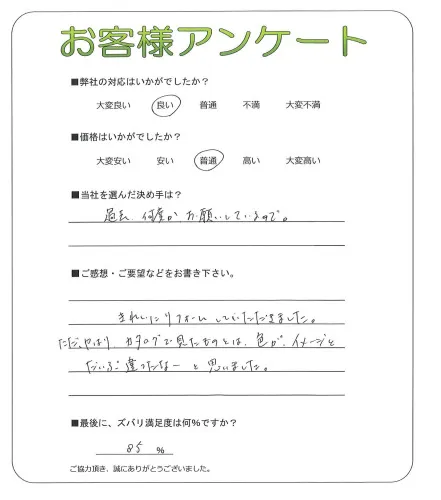 お客様アンケート
■弊社の対応はいかがでしたか？
大変良い 良い 普通 不満 大変不満
■価格はいかがでしたか？
大変安い 安い 普通 高い 大変高い
■当社を選んだ決め手は？
過去、何度かお願いしているので。
■ご感想・ご要望などをお書き下さい。
きれいにリフォームしていただきました。
ただ、やはり、カタログで見たものとは、色が、イメージと
だいぶ違ったなーと思いました。
■最後に、ズバリ満足度は何%ですか？
85 %
ご協力頂き、誠にありがとうございました。